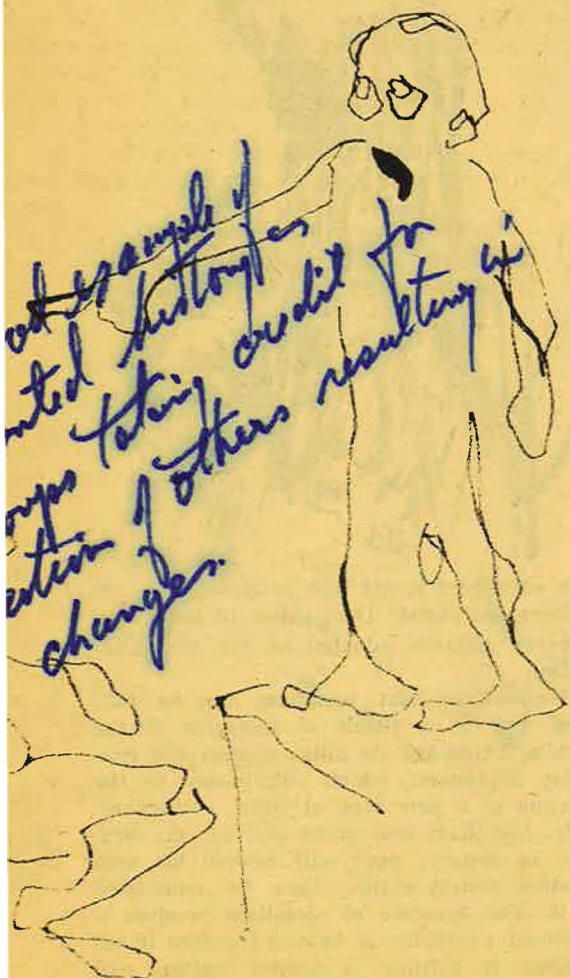 od example of
nted history as
oups taking credit for
ection of others resulting in
changes.